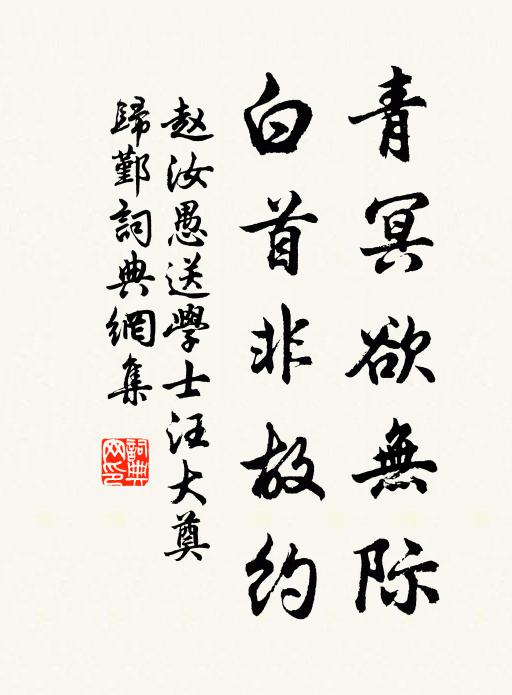 青冥欲無际
白首非故约
赵汝愚送學士汪大奠
歸鄞詞典網集
詞典
网印